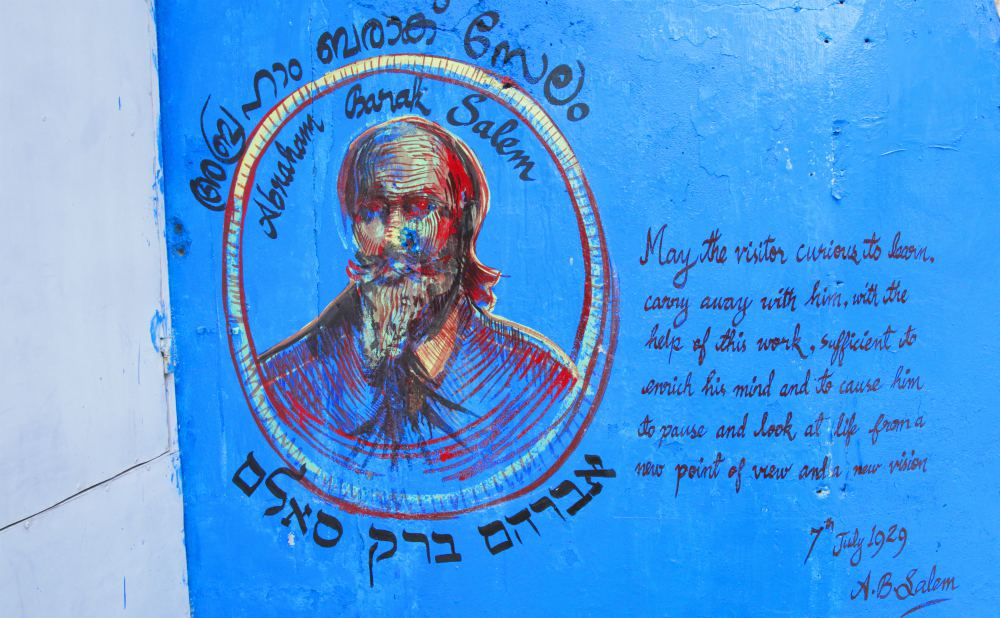 അബ്രഹാം ബരാക് സേലം
Abraham Barak Salem
אברהם ברק סאלם
May the visitor curious to learn,
carry away with him, with the
help of this work, sufficient to
enrich his mind and to cause him
to pause and look at life from a
new point of view and a new vision
7th July 1929
A.B.Salem